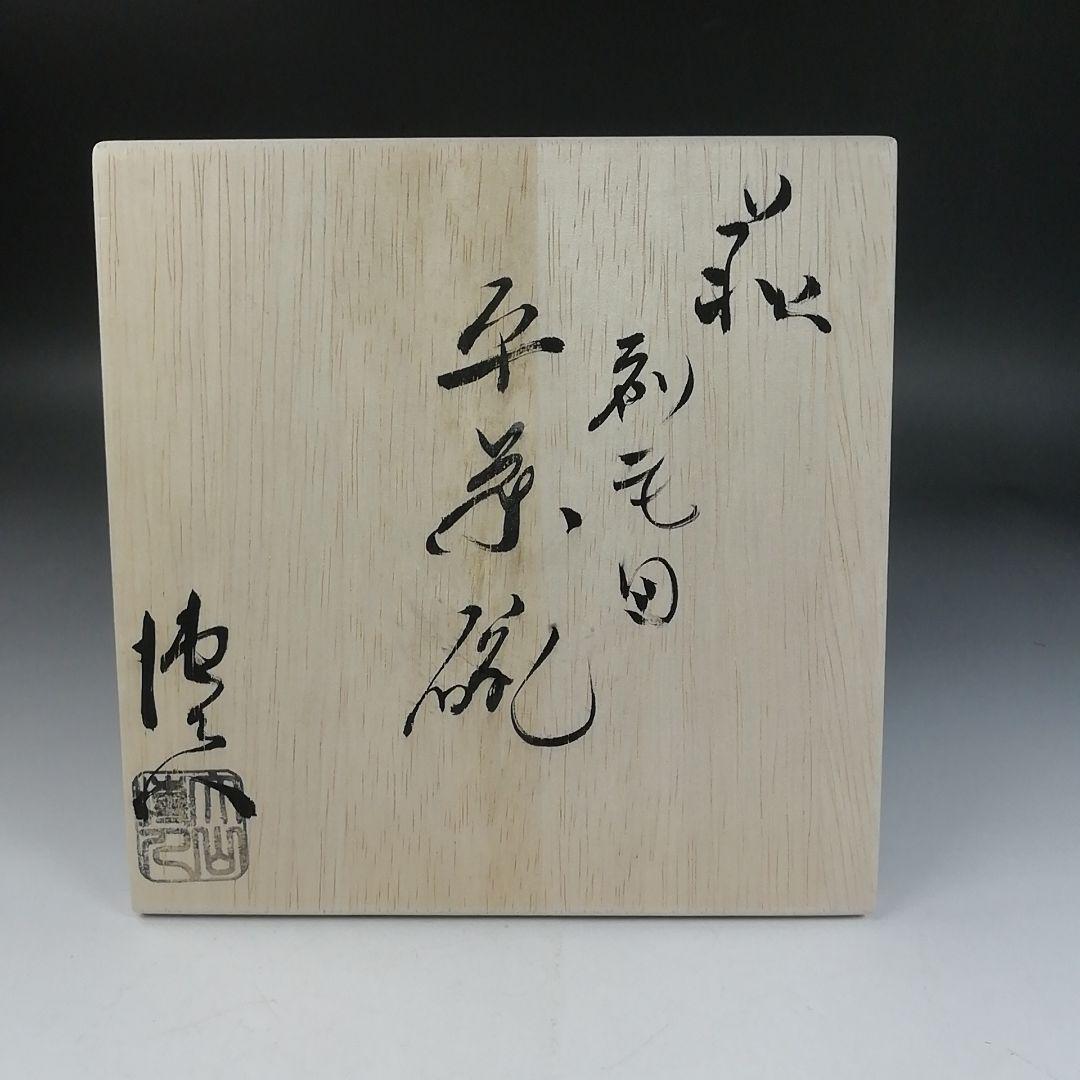 萩
刷毛目
平茶碗